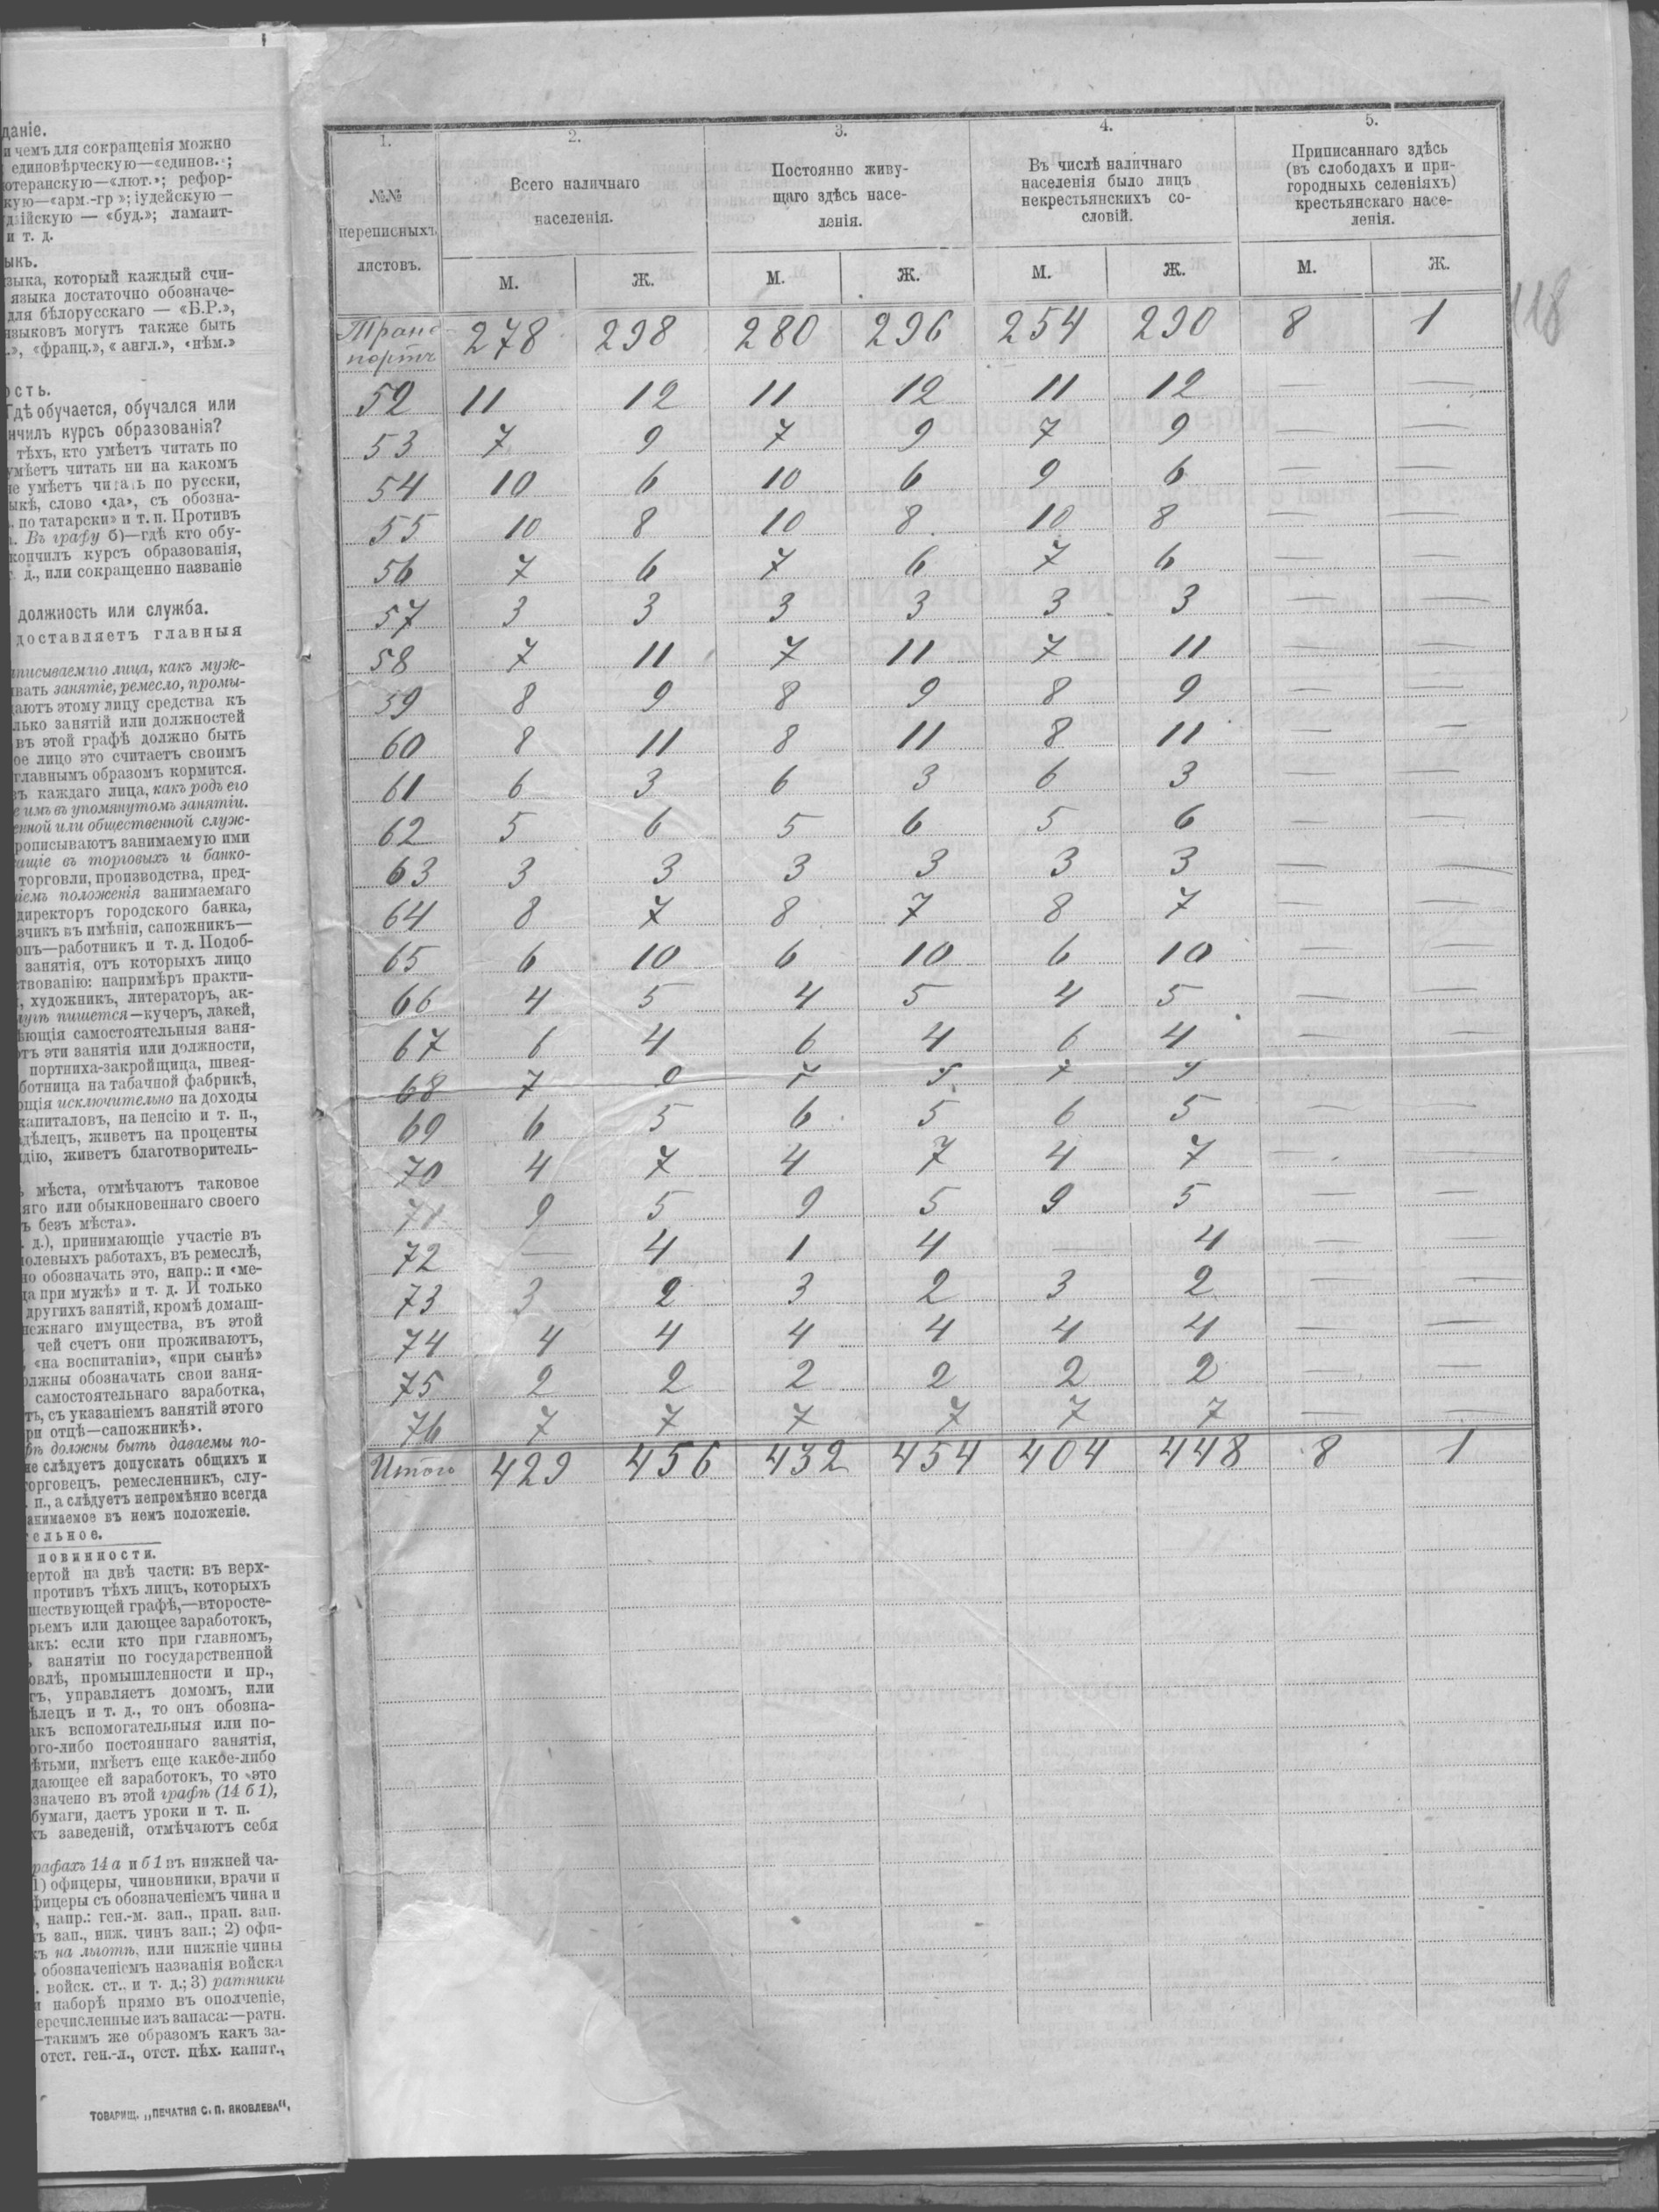 даніе.
и чемъ для сокращенія можно
единовѣрческую—«единов.»;
ютеранскую—«лют.»; рефор-
кую—«арм.-гр»; іудейскую —
дійскую — «буд.»; ламаит-
и т. д.
ыкъ.
зыка, который каждый счи-
языка достаточно обозначе-
для бѣлорусскаго — «Б.Р.»,
языковъ могутъ также быть
.», «франц.», «англ.», «нѣм.»
ость.
Гдѣ обучается, обучался или
нчилъ курсъ образованія?
тѣхъ, кто умѣетъ читать по
умѣетъ читать ни на какомъ
не умѣетъ читать по русски,
ыкѣ, слово «да», съ обозна-
. по татарски» и т. п. Противъ
. Въ графу б)—гдѣ кто обу-
кончилъ курсъ образованія,
д., или сокращенно названіе
должность или служба.
доставляетъ главныя
писываемаго лица, какъ муж-
вать занятіе, ремесло, промы-
аютъ этому лицу средства къ
лько занятій или должностей
въ этой графѣ должно быть
ое лицо это считаетъ своимъ
главнымъ образомъ кормится.
ъ каждаго лица, какъ родъ его
е имъ въ упомянутомъ занятіи.
енной или общественной служ-
рописываютъ занимаемую ими
ащіе въ торговыхъ и банко-
торговли, производства, пред-
ніемъ положенія занимаемаго
директоръ городского банка,
зчикъ въ имѣніи, сапожникъ—
опъ—работникъ и т. д. Подоб-
занятія, отъ которыхъ лицо
ствованію: напримѣръ практи-
, художникъ, литераторъ, ак-
лугъ пишется—кучеръ, лакей,
ѣющія самостоятельныя заня-
тъ эти занятія или должности,
портниха-закройщица, швея-
ботница на табачной фабрикѣ,
ющія исключительно на доходы
капиталовъ, на пенсію и т. п.,
дѣлецъ, живетъ на проценты
дію, живетъ благотворитель-
мѣста, отмѣчаютъ таковое
яго или обыкновеннаго своего
ъ безъ мѣста».
. д.), принимающіе участіе въ
полевыхъ работахъ, въ ремеслѣ,
но обозначать это, напр.: и «ме-
ца при мужѣ» и т. д. И только
другихъ занятій, кромѣ домаш-
нежнаго имущества, въ этой
чей счетъ они проживаютъ,
, «на воспитаніи», «при сынѣ»
олжны обозначать свои заня-
самостоятельнаго заработка,
тъ, съ указаніемъ занятій этого
ри отцѣ—сапожникѣ».
ѣ должны быть даваемы по-
не слѣдуетъ допускать общихъ и
орговецъ, ремесленникъ, слу-
. п., а слѣдуетъ непремѣнно всегда
анимаемое въ немъ положеніе.
ельное.
повинности.
ертой на двѣ части: въ верх-
противъ тѣхъ лицъ, которыхъ
шествующей графѣ,—второсте-
рьемъ или дающее заработокъ,
акъ: если кто при главномъ,
, занятіи по государственной
овлѣ, промышленности и пр.,
гъ, управляетъ домомъ, или
ѣлецъ и т. д., то онъ обозна-
акъ вспомогательныя или по-
ого-либо постояннаго занятія,
ѣтьми, имѣетъ еще какое-либо
дающее ей заработокъ, то это
значено въ этой графѣ (14 б 1),
бумаги, даетъ уроки и т. п.
хъ заведеній, отмѣчаютъ себя
рафахъ 14 а и б 1 въ нижней ча-
1) офицеры, чиновники, врачи и
фицеры съ обозначеніемъ чина и
, напр.: ген.-м. зап., прап. зап.
ъ зап., ниж. чинъ зап.; 2) офи-
ъ на льготѣ, или нижніе чины
обозначеніемъ названія войска
. войск. ст. и т. д.; 3) ратники
и наборѣ прямо въ ополченіе,
еречисленные изъ запаса:—ратн.
—такимъ же образомъ какъ за-
отст. ген.-л., отст. цѣх. капит.,
ТОВАРИЩ. „ПЕЧАТНЯ С. П. ЯКОВЛЕВА“,
1. 2. 3. 4. 5.
№№ переписныхъ листовъ.
Всего наличнаго
населенія.
Постоянно живу-
щаго здѣсь насе-
ленія.
Въ числѣ наличнаго
населенія было лицъ
некрестьянскихъ со-
словій.
Приписаннаго здѣсь
(въ слободахъ и при-
городныхъ селеніяхъ)
крестьянскаго насе-
ленія.
М. Ж. М. Ж. М. Ж. М. Ж.
118
Транс-
портъ 278 298 280 296 254 290 8 1
52 11 12 11 12 11 12 — —
53 7 9 7 9 7 9 — —
54 10 6 10 6 9 6 — —
55 10 8 10 8 10 8 — —
56 7 6 7 6 7 6 — —
57 3 3 3 3 3 3 — —
58 7 11 7 11 7 11 — —
59 8 9 8 9 8 9 — —
60 8 11 8 11 8 11 — —
61 6 3 6 3 6 3 — —
62 5 6 5 6 5 6 — —
63 3 3 3 3 3 3 — —
64 8 7 8 7 8 7 — —
65 6 10 6 10 6 10 — —
66 4 5 4 5 4 5 — —
67 6 4 6 4 6 4 — —
68 7 7 7
69 6 5 6 5 6 5 — —
70 4 7 4 7 4 7 — —
71 9 5 9 5 9 5 — —
72 — 4 1 4 — 4 — —
73 3 2 3 2 3 2 — —
74 4 4 4 4 4 4 — —
75 2 2 2 2 2 2 — —
76 7 7 7 7 7 7 — —
Итого 429 456 432 454 404 448 8 1